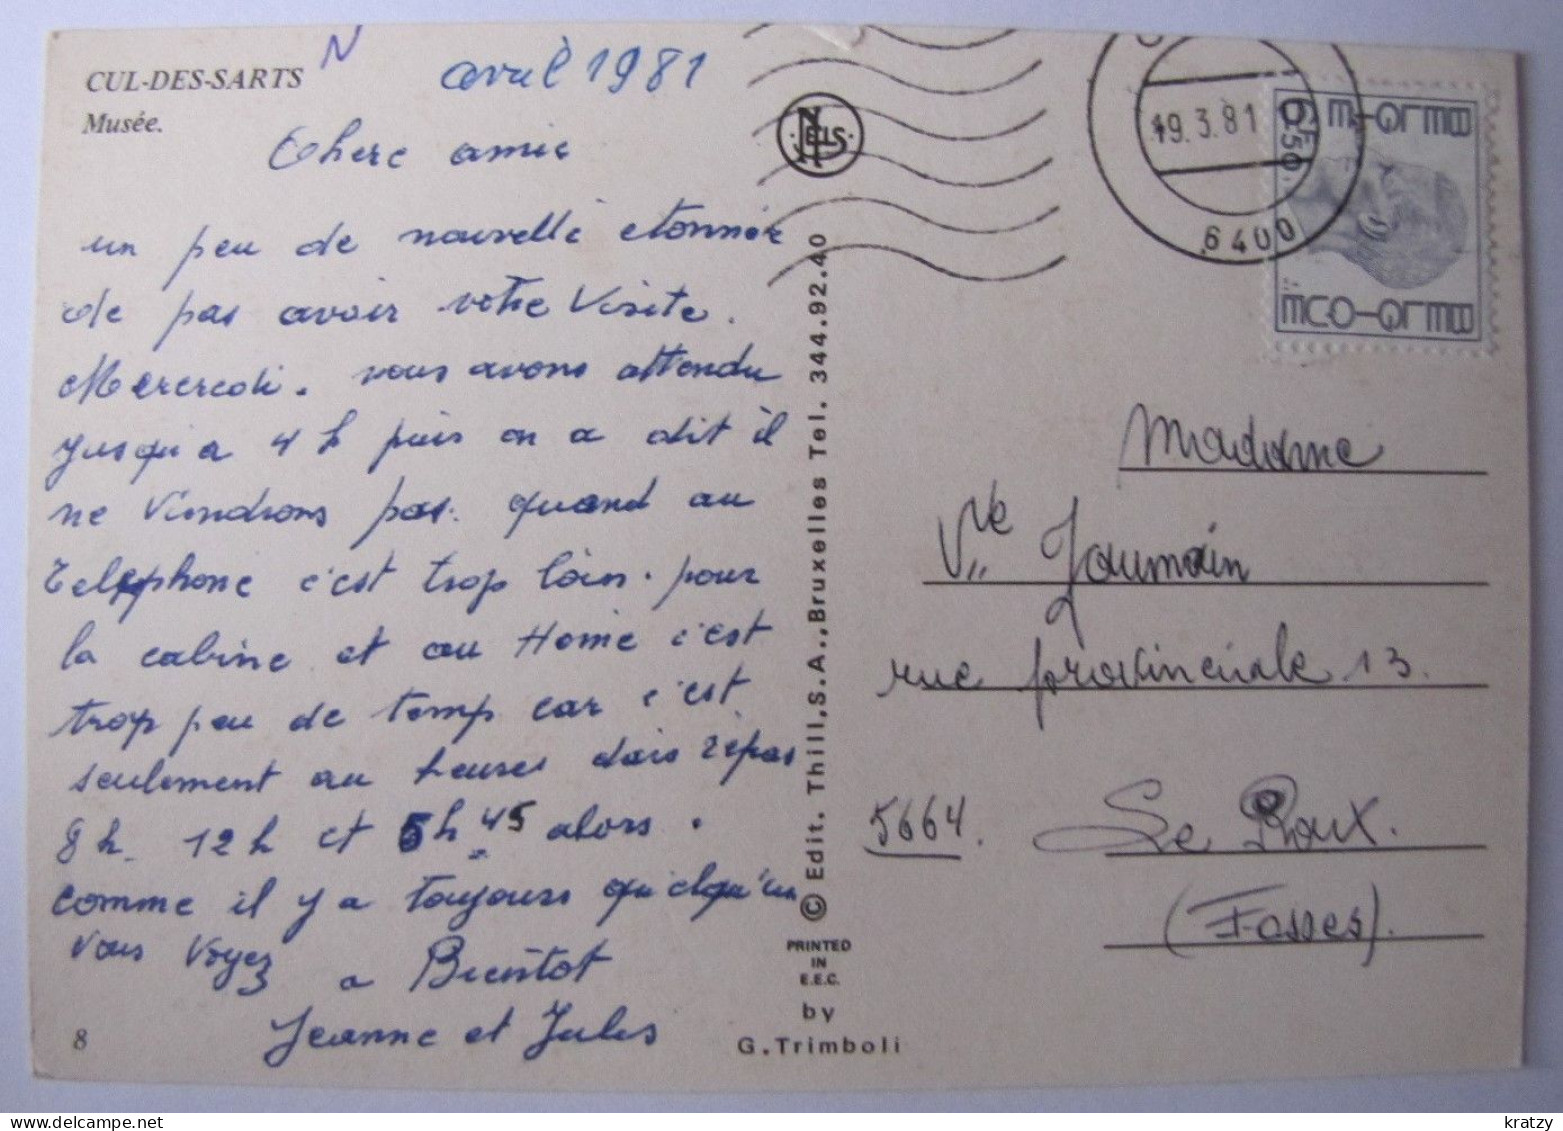 CUL-DES-SARTS
Musée.
N
avril 1981
Chere amie
un peu de nouvelle etonnér
de pas avoir votre Visite.
Mercredi. nous avons attendu
Jusqu'a 4 h puis on a dit il
ne Viendrons pas. quand au
Telephone c'est trop loin. pour
la cabine et au Home c'est
trop peu de temp car c'est
seulement au heures dais répas
8 h. 12 h et 5 h 45 alors.
comme il y a toujours quelqu'un
Vous Voyez a Bientot
Jeanne et Jules
8
NELS
© Edit. Thill, S.A., Bruxelles Tel. 344.92.40
PRINTED
IN
E.E.C.
by
G. Trimboli
19.3.81
6400
BELGIQUE
BELGIE
6F50
Madame
Vve Joumain
rue provinciale 13.
5664. Le Roux.
(Fosses).
kratzy